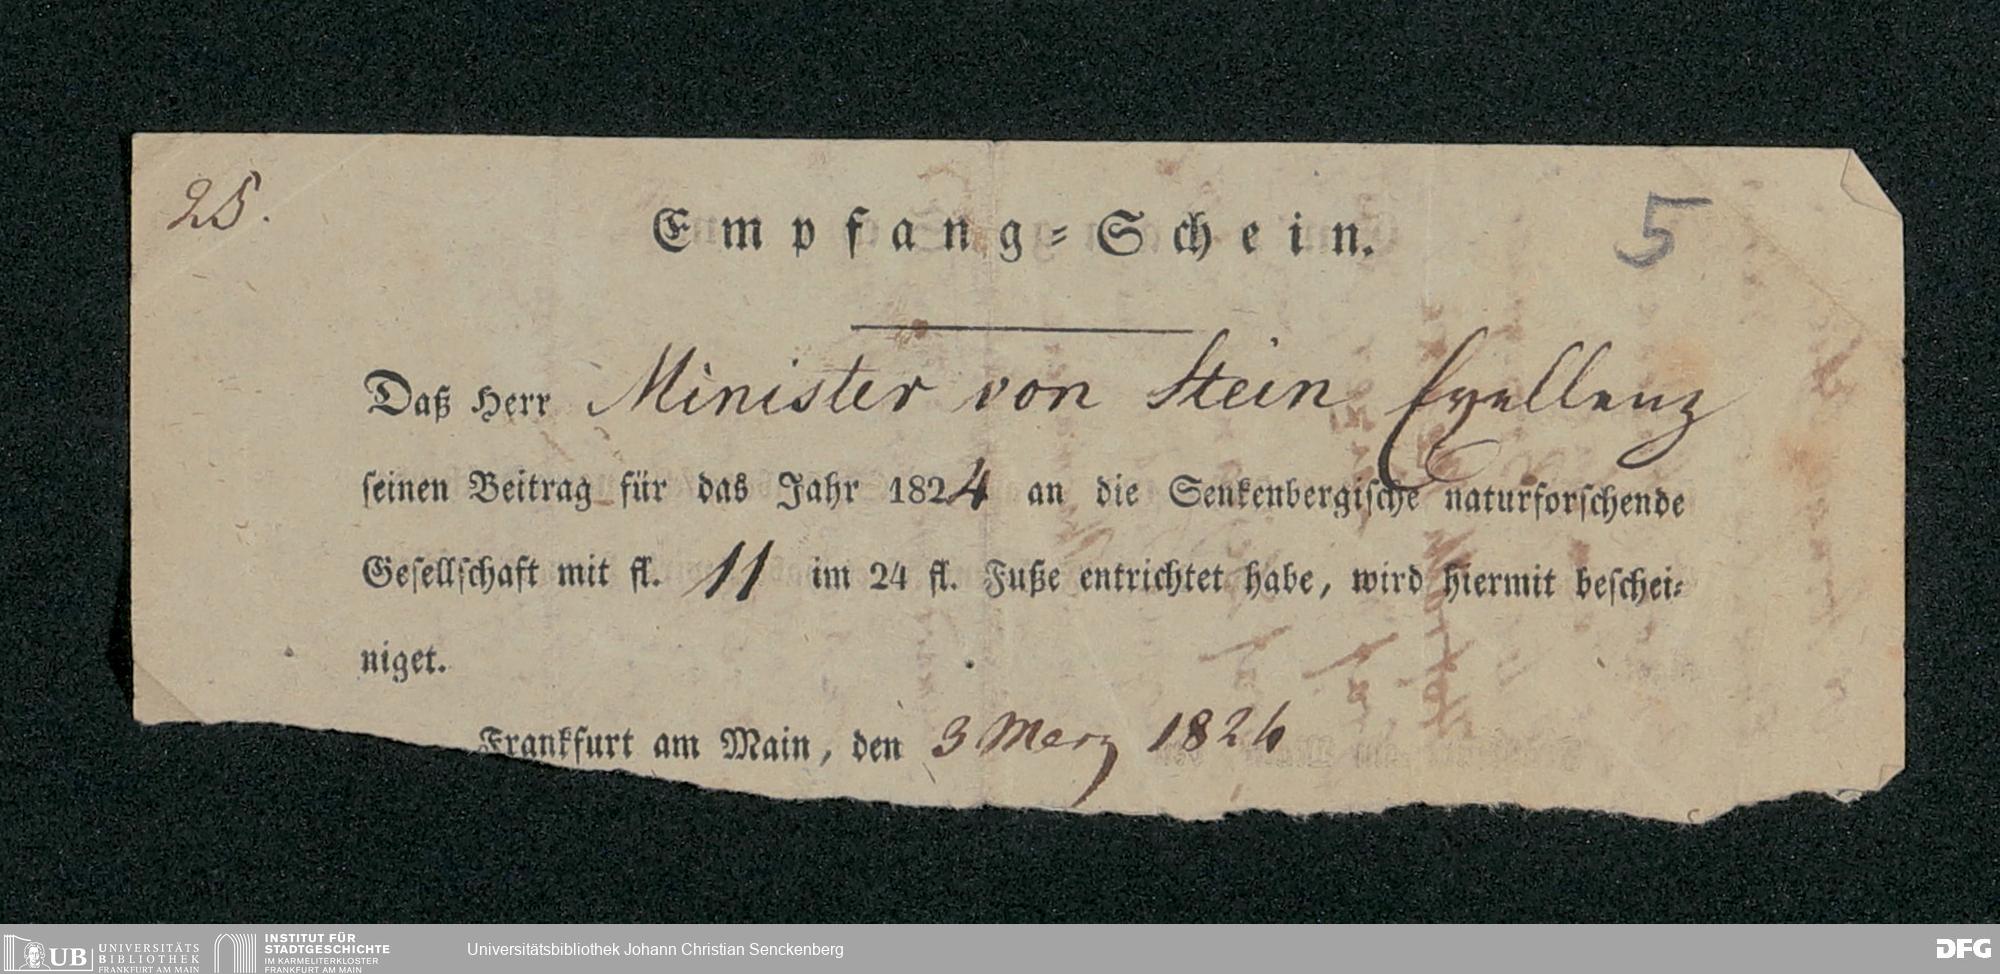 25.
5
Empfang-Schein.
Daß Herr Minister von Stein Exellenz
seinen Beitrag für das Jahr 1824 an die Senkenbergische naturforschende
Gesellschaft mit fl. 11 im 24 fl. Fuße entrichtet habe, wird hiermit beschei-
niget.
Frankfurt am Main, den 3 Merz 1824
UB UNIVERSITÄTS
BIBLIOTHEK
FRANKFURT AM MAIN
INSTITUT FÜR
STADTGESCHICHTE
IM KARMELITERKLOSTER
FRANKFURT AM MAIN
Universitätsbibliothek Johann Christian Senckenberg
DFG